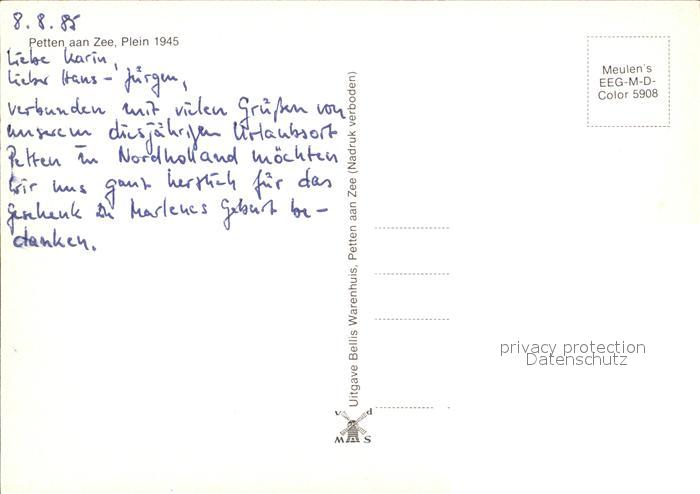 8.8.85
Petten aan Zee, Plein 1945
Liebe Karin,
lieber Hans-Jürgen,
verbunden mit vielen Grüßen von
unserem diesjährigen Urlaubsort
Petten in Nordholland möchten
wir uns ganz herzlich für das
Geschenk zu Marlenes Geburt be-
danken.
Uitgave Bellis Warenhuis, Petten aan Zee (Nadruk verboden)
v d
M S
Meulen's
EEG-M-D-
Color 5908
privacy protection
Datenschutz